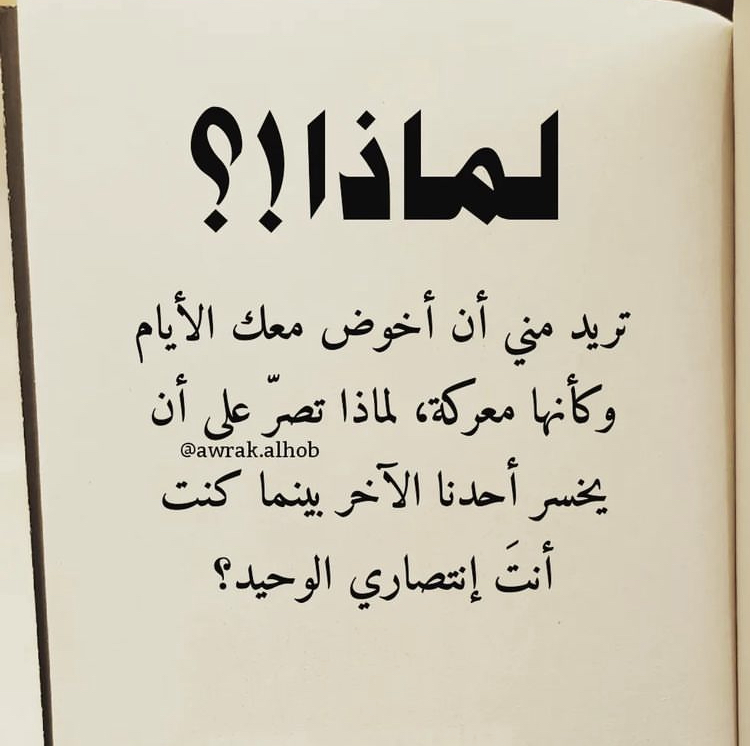 لماذا!؟
تريد مني أن أخوض معك الأيام
وكأنها معركة، لماذا تصرّ على أن
@awrak.alhob
يخسر أحدنا الآخر بينما كنت
أنتَ إنتصاري الوحيد؟